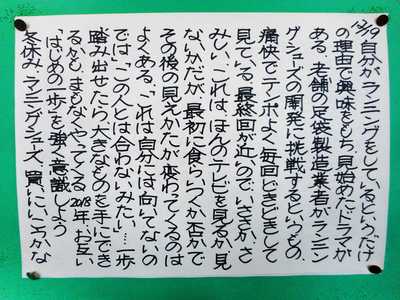 12/19 自分がランニングをしているというだけ
の理由で興味をもち、見始めたドラマが
ある。老舗の足袋製造業者がランニン
グシューズの開発に挑戦するというもの。
痛快でテンポよく毎回どきどきして
見ている。最終回が近いので、いささか、さ
みしい。これは、ほんのテレビを見るか見
ないかだが、最初に食らいつくか否かで
その後の見えかたが変わってくるのは
よくある。「これは自分には向いてないの
では」「この人とは合わないみたい」…一歩
踏み出せたら、大きなものを手にでき
るかも。まもなくやってくる2018年、お互い
「はじめの一歩」を強く意識しよう
冬休み、ランニングシューズ、買いにいこうかな